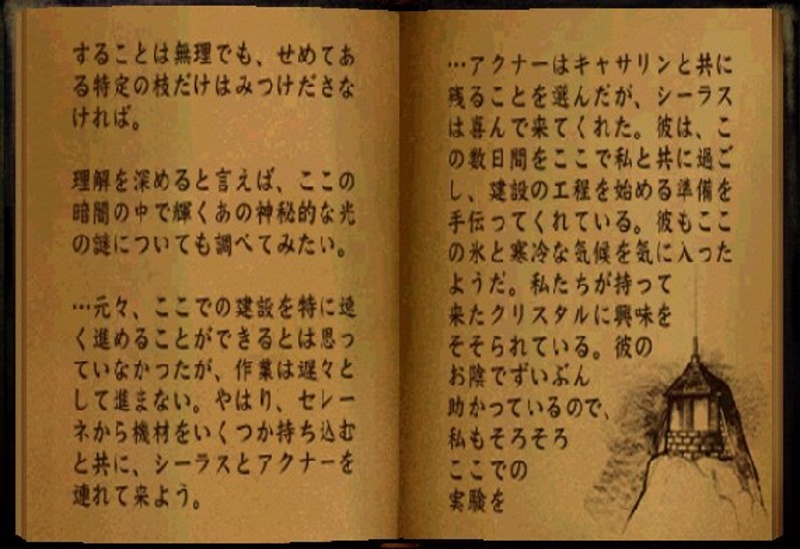 することは無理でも、せめてあ
る特定の枝だけはみつけださな
ければ。
理解を深めると言えば、ここの
暗闇の中で輝くあの神秘的な光
の謎についても調べてみたい。
…元々、ここでの建設を特に速
く進めることができるとは思っ
ていなかったが、作業は遅々と
して進まない。やはり、セレー
ネから機材をいくつか持ち込む
と共に、シーラスとアクナーを
連れて来よう。
…アクナーはキャサリンと共に
残ることを選んだが、シーラス
は喜んで来てくれた。彼は、こ
の数日間をここで私と共に過ご
し、建設の工程を始める準備を
手伝ってくれている。彼もここ
の氷と寒冷な気候を気に入った
ようだ。私たちが持って
来たクリスタルに興味を
そそられている。彼の
お陰でずいぶん
助かっているので、
私もそろそろ
ここでの
実験を